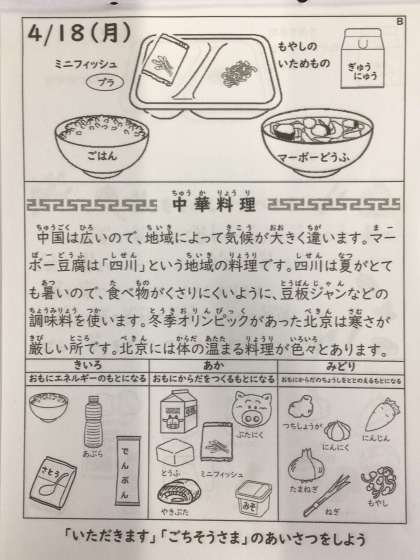 B
4/18(月)
ミニフィッシュ
プラ
もやしの
いためもの
ぎゅう
にゅう
ごはん
マーボーどうふ
中華料理
中国は広いので、地域によって気候が大きく違います。マー
ボー豆腐は「四川」という地域の料理です。四川は夏がとて
も暑いので、食べ物がくさりにくいように、豆板ジャンなどの
調味料を使います。冬季オリンピックがあった北京は寒さが
厳しい所です。北京には体の温まる料理が色々とあります。
きいろ
おもにエネルギーのもとになる
あぶら
さとう
でんぷん
あか
おもにからだをつくるもとになる
ぶたにく
とうふ
ミニフィッシュ
やきぶた
みそ
みどり
おもにからだのちょうしをととのえるもとになる
つちしょうが
にんにく
にんじん
たまねぎ
ねぎ
もやし
「いただきます」「ごちそうさま」のあいさつをしよう